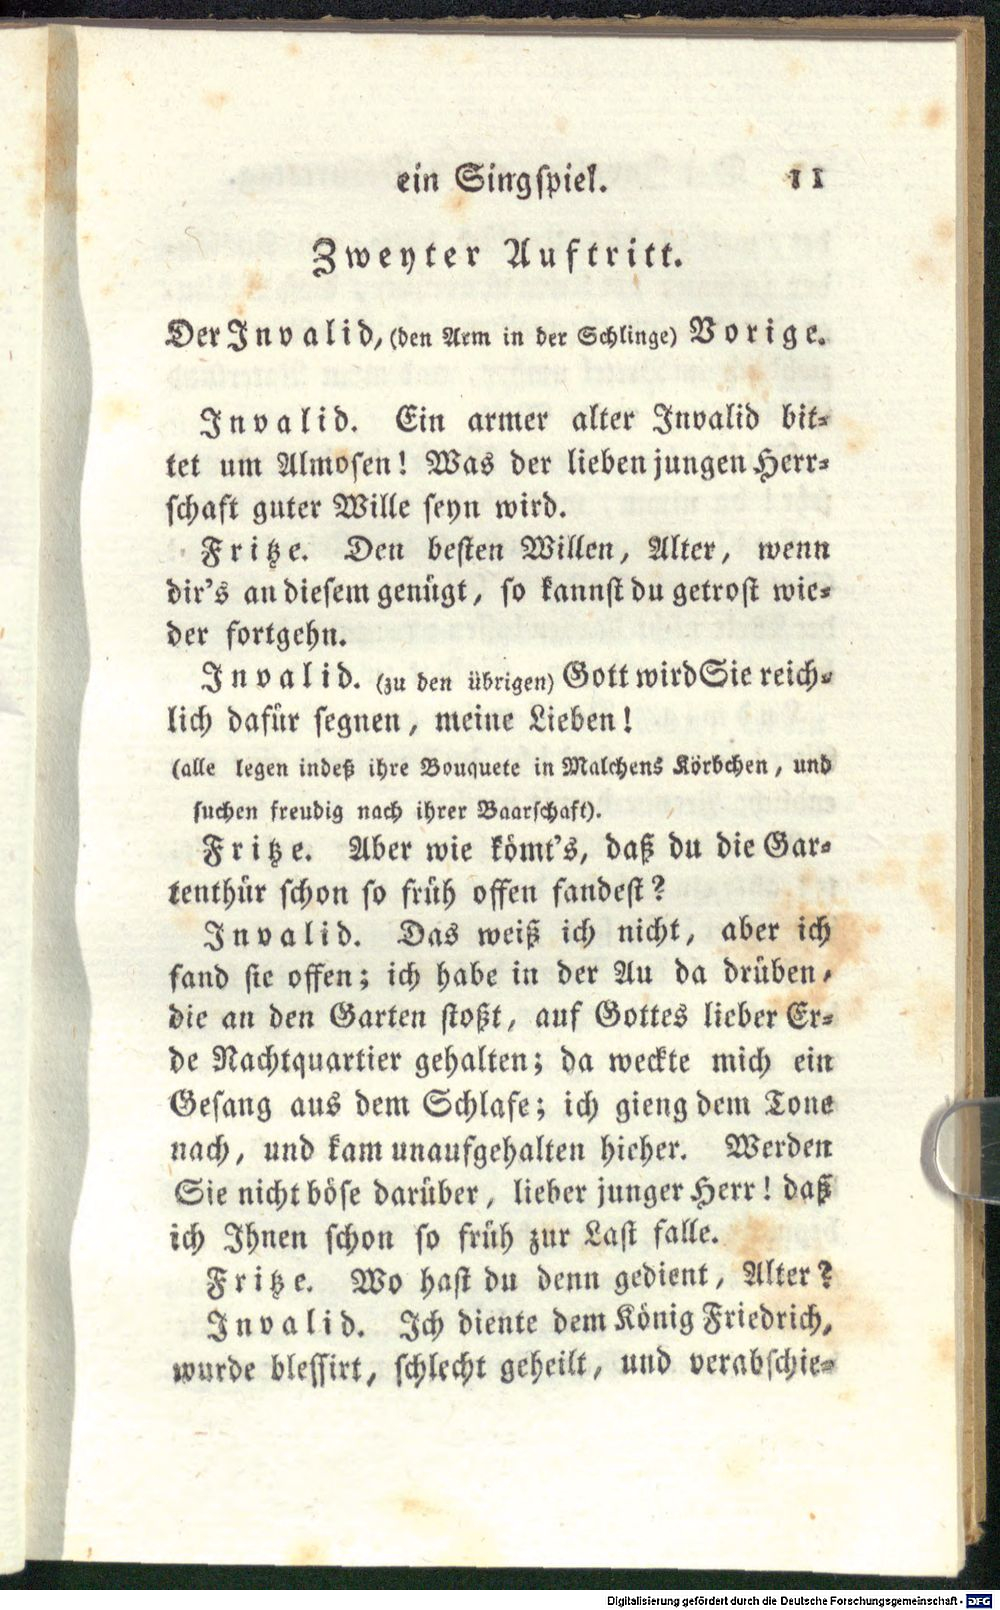 ein Singspiel. 11
Zweyter Auftritt.
Der Invalid, (den Arm in der Schlinge) Vorige.
Invalid. Ein armer alter Invalid bit-
tet um Almosen! Was der lieben jungen Herr-
schaft guter Wille seyn wird.
Fritze. Den besten Willen, Alter, wenn
dir's an diesem genügt, so kannst du getrost wie-
der fortgehn.
Invalid. (zu den übrigen) Gott wird Sie reich-
lich dafür segnen, meine Lieben!
(alle legen indeß ihre Bouquete in Malchens Körbchen, und
suchen freudig nach ihrer Baarschaft).
Fritze. Aber wie kömt's, daß du die Gar-
tenthür schon so früh offen fandest?
Invalid. Das weiß ich nicht, aber ich
fand sie offen; ich habe in der Au da drüben,
die an den Garten stoßt, auf Gottes lieber Er-
de Nachtquartier gehalten; da weckte mich ein
Gesang aus dem Schlafe; ich gieng dem Tone
nach, und kam unaufgehalten hieher. Werden
Sie nicht böse darüber, lieber junger Herr! daß
ich Ihnen schon so früh zur Last falle.
Fritze. Wo hast du denn gedient, Alter?
Invalid. Ich diente dem König Friedrich,
wurde blessirt, schlecht geheilt, und verabschie-
Digitalisierung gefördert durch die Deutsche Forschungsgemeinschaft - DFG